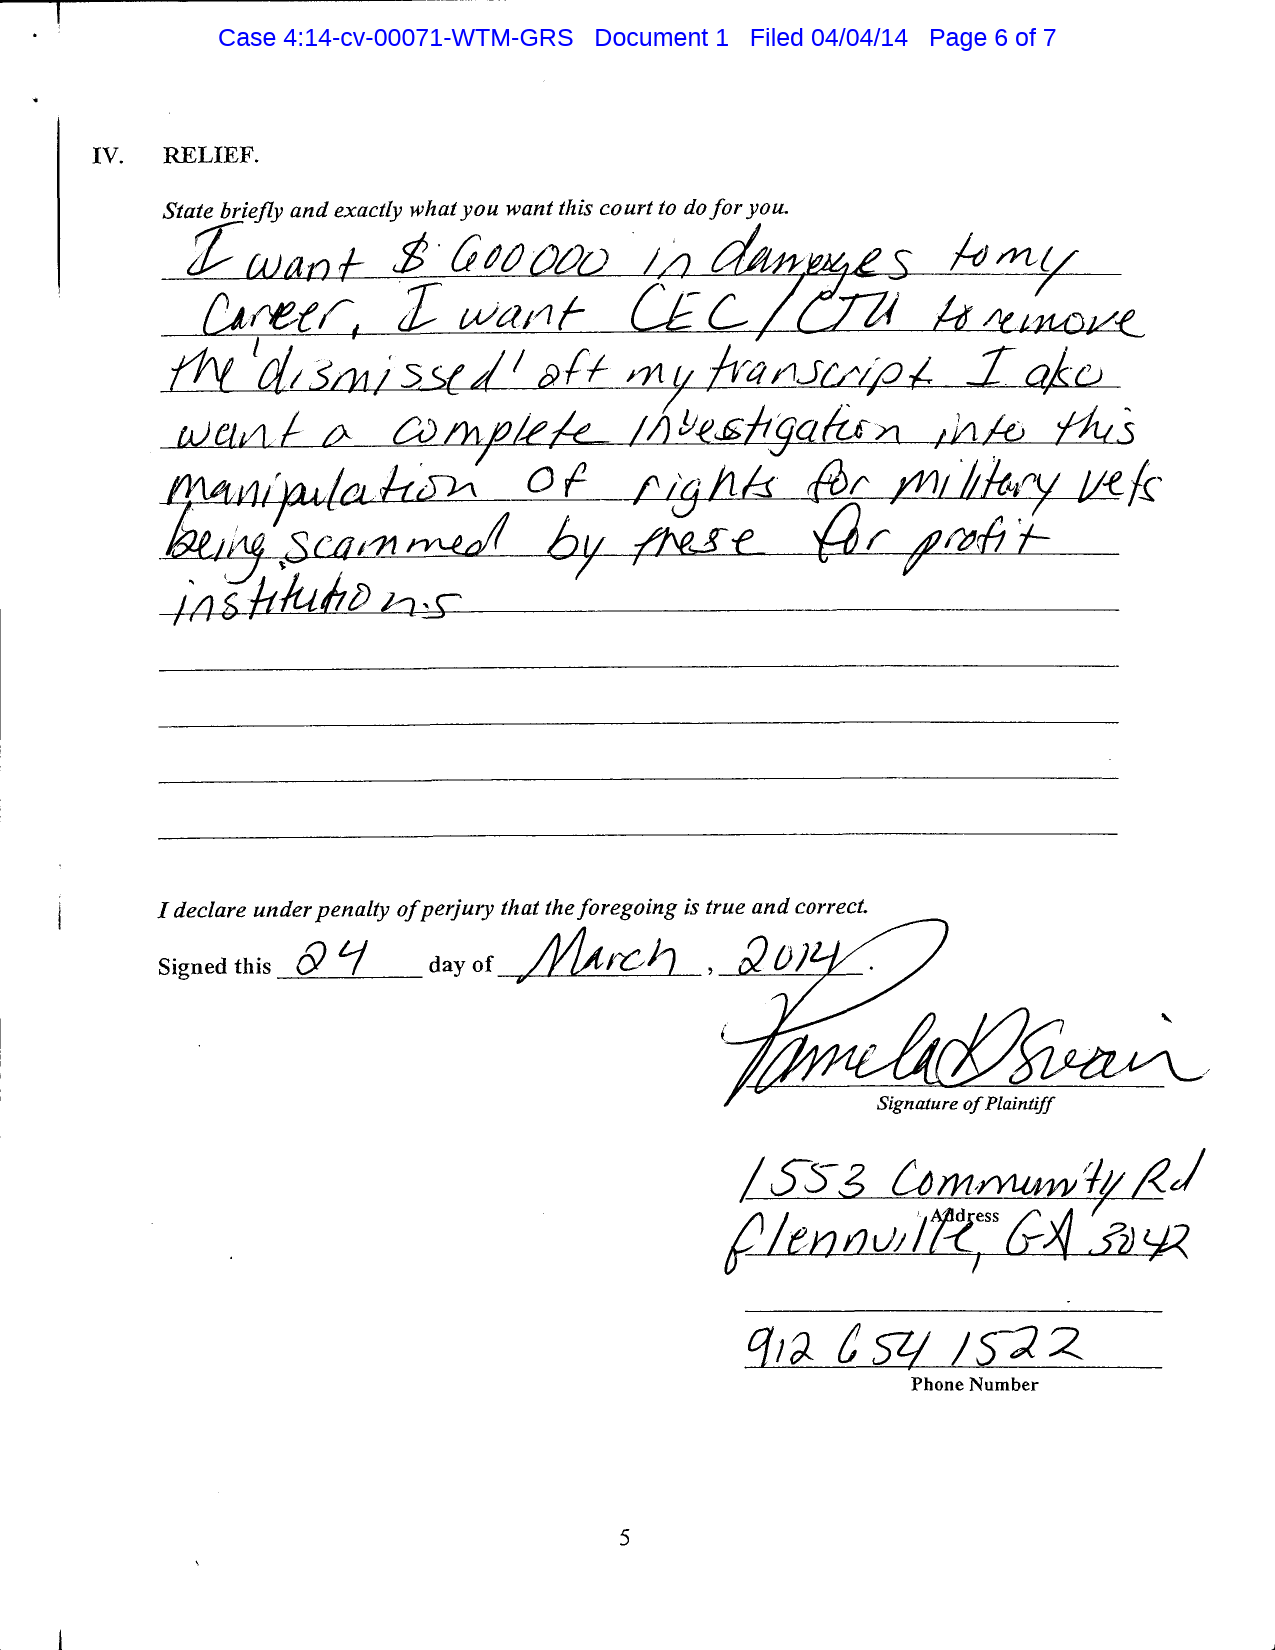 Case 4:14-cv-00071-WTM-GRS Document 1 Filed 04/04/14 Page 6 of 7
IV. RELIEF.
State briefly and exactly what you want this court to do for you.
I want $600000 in damages to my
Career, I want CEC/CTU to remove
the 'dismissed' off my transcript I also
want a complete investigation into this
manipulation of rights for military vets
being scammed by these for profit
institutions
I declare under penalty of perjury that the foregoing is true and correct.
Signed this 24 day of March, 2014.
Pamela D Swain
Signature of Plaintiff
1553 Community Rd
Address
Glennville, GA 3042
912 654 1522
Phone Number
5